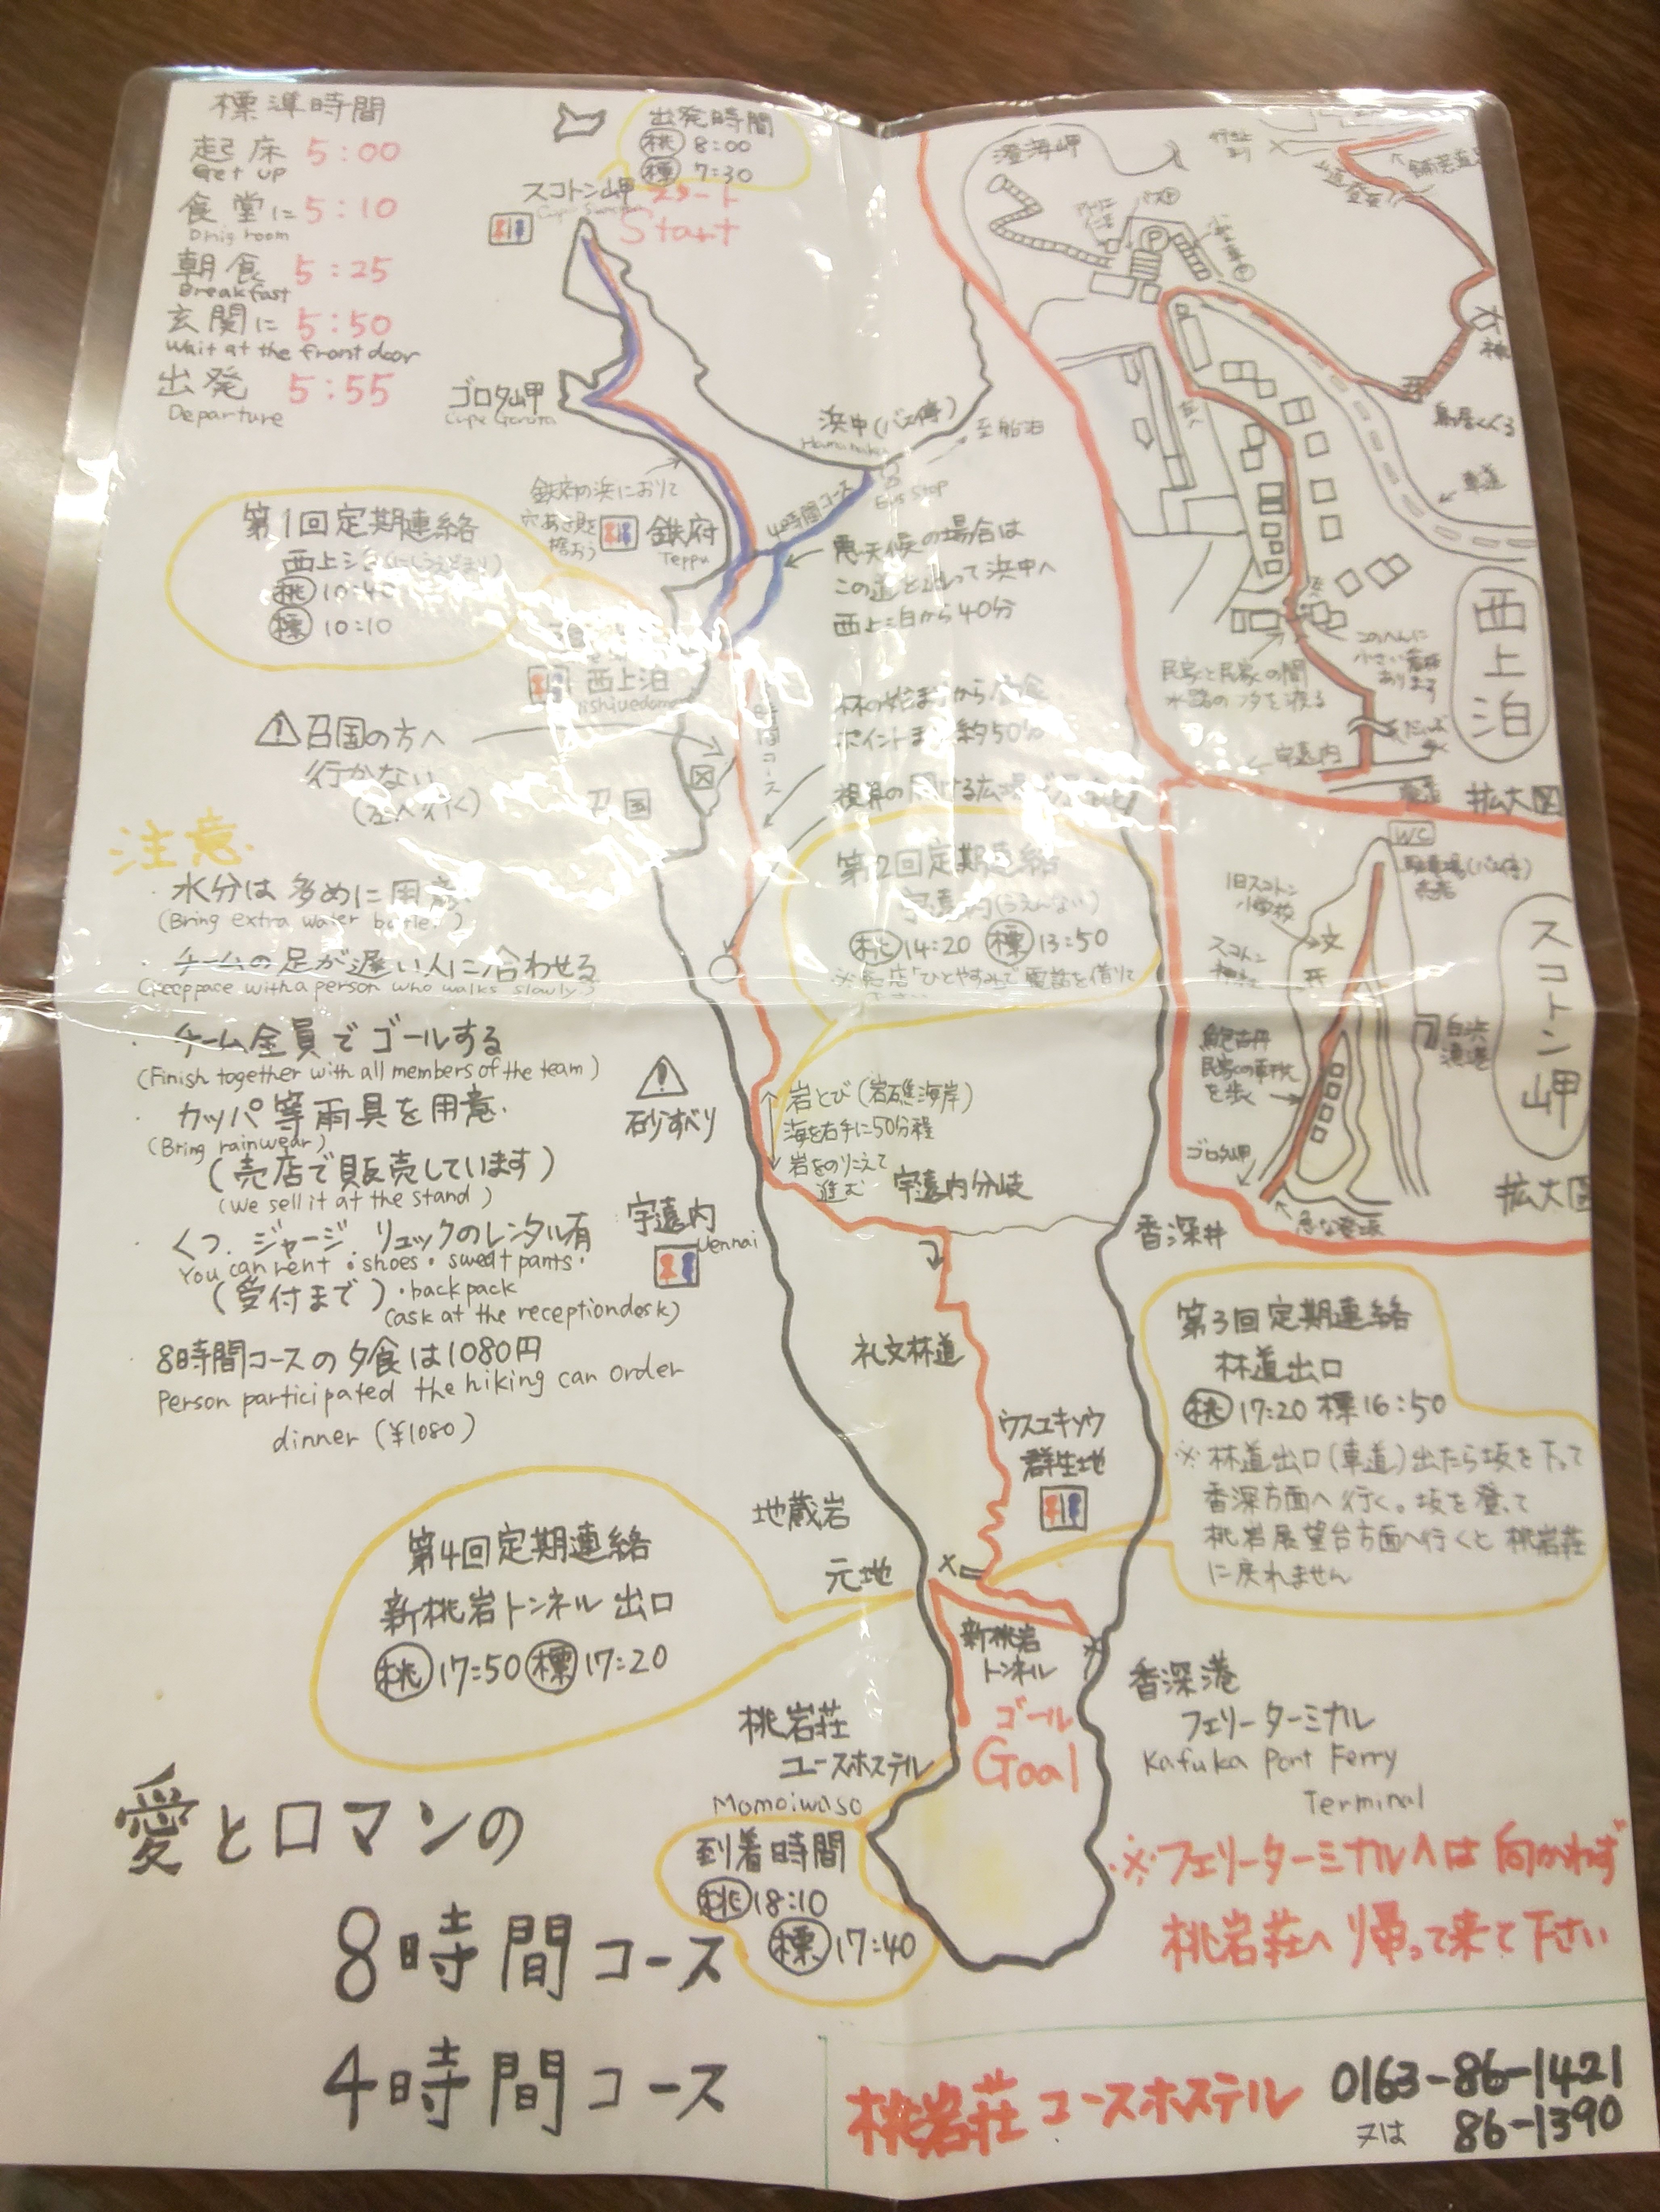 標準時間
起床 5:00
Get up
食堂に 5:10
朝食 5:25
Breakfast
玄関に 5:50
Wait at the front door
出発 5:55
Departure
出発時間
桃 8:00
標 7:30
スコトン岬 スタート
Start
ゴロタ岬
浜中(バス停)
至船泊
Bus stop
4時間コース
鉄府の浜におりて
穴あき貝を
拾おう
鉄府
Teppu
悪天候の場合は
この道を通って浜中へ
西上泊から40分
第1回定期連絡
西上泊(にしうえどまり)
桃 10:40
標 10:10
西上泊
召国の方へ
行かない
(左へ行く)
召国
注意
・水分は多めに用意
(Bring extra water bottle.)
・チームの足が遅い人に合わせる
(Keep pace with a person who walks slowly.)
・チーム全員でゴールする
(Finish together with all members of the team)
・カッパ等雨具を用意.
(Bring rainwear)
(売店で販売しています)
(We sell it at the stand)
・くつ.ジャージ.リュックのレンタル有
You can rent・shoes・sweat pants・
(受付まで)・backpack
(ask at the receptiondesk)
8時間コースの夕食は1080円
Person participated the hiking can order
dinner (¥1080)
第2回定期連絡
宇遠内(うえんない)
桃 14:20 標 13:50
砂すべり
岩とび(岩礁海岸)
海を右手に50分程
岩をのりこえて
進む
宇遠内分岐
宇遠内
Uennai
香深井
礼文林道
ウスユキソウ
群生地
第3回定期連絡
林道出口
桃 17:20 標 16:50
※林道出口(車道)出たら坂を下って
香深方面へ行く。坂を登って
桃岩展望台方面へ行くと桃岩荘
に戻れません
地蔵岩
元地
第4回定期連絡
新桃岩トンネル出口
桃 17:50 標 17:20
新桃岩
トンネル
ゴール
Goal
香深港
フェリーターミナル
Kafuka Port Ferry
Terminal
桃岩荘
ユースホステル
Momoiwaso
到着時間
桃 18:10
標 17:40
※フェリーターミナルへは向かわず
桃岩荘へ帰って来て下さい
愛とロマンの
8時間コース
4時間コース
桃岩荘ユースホステル 0163-86-1421
又は 86-1390
澄海岬
石楠
鳥居くぐる
車道
西上泊
民家と民家の間
水路のフタを渡る
このへんに
小さい看板
あります
宇遠内
拡大図
WC
駐車場(バス停)
売店
旧スコトン
小学校
文
スコトン
神社
スコトン岬
白浜
漁港
鮑古丹
民家の軒先
を歩く
ゴロタ岬
急な登坂
拡大図